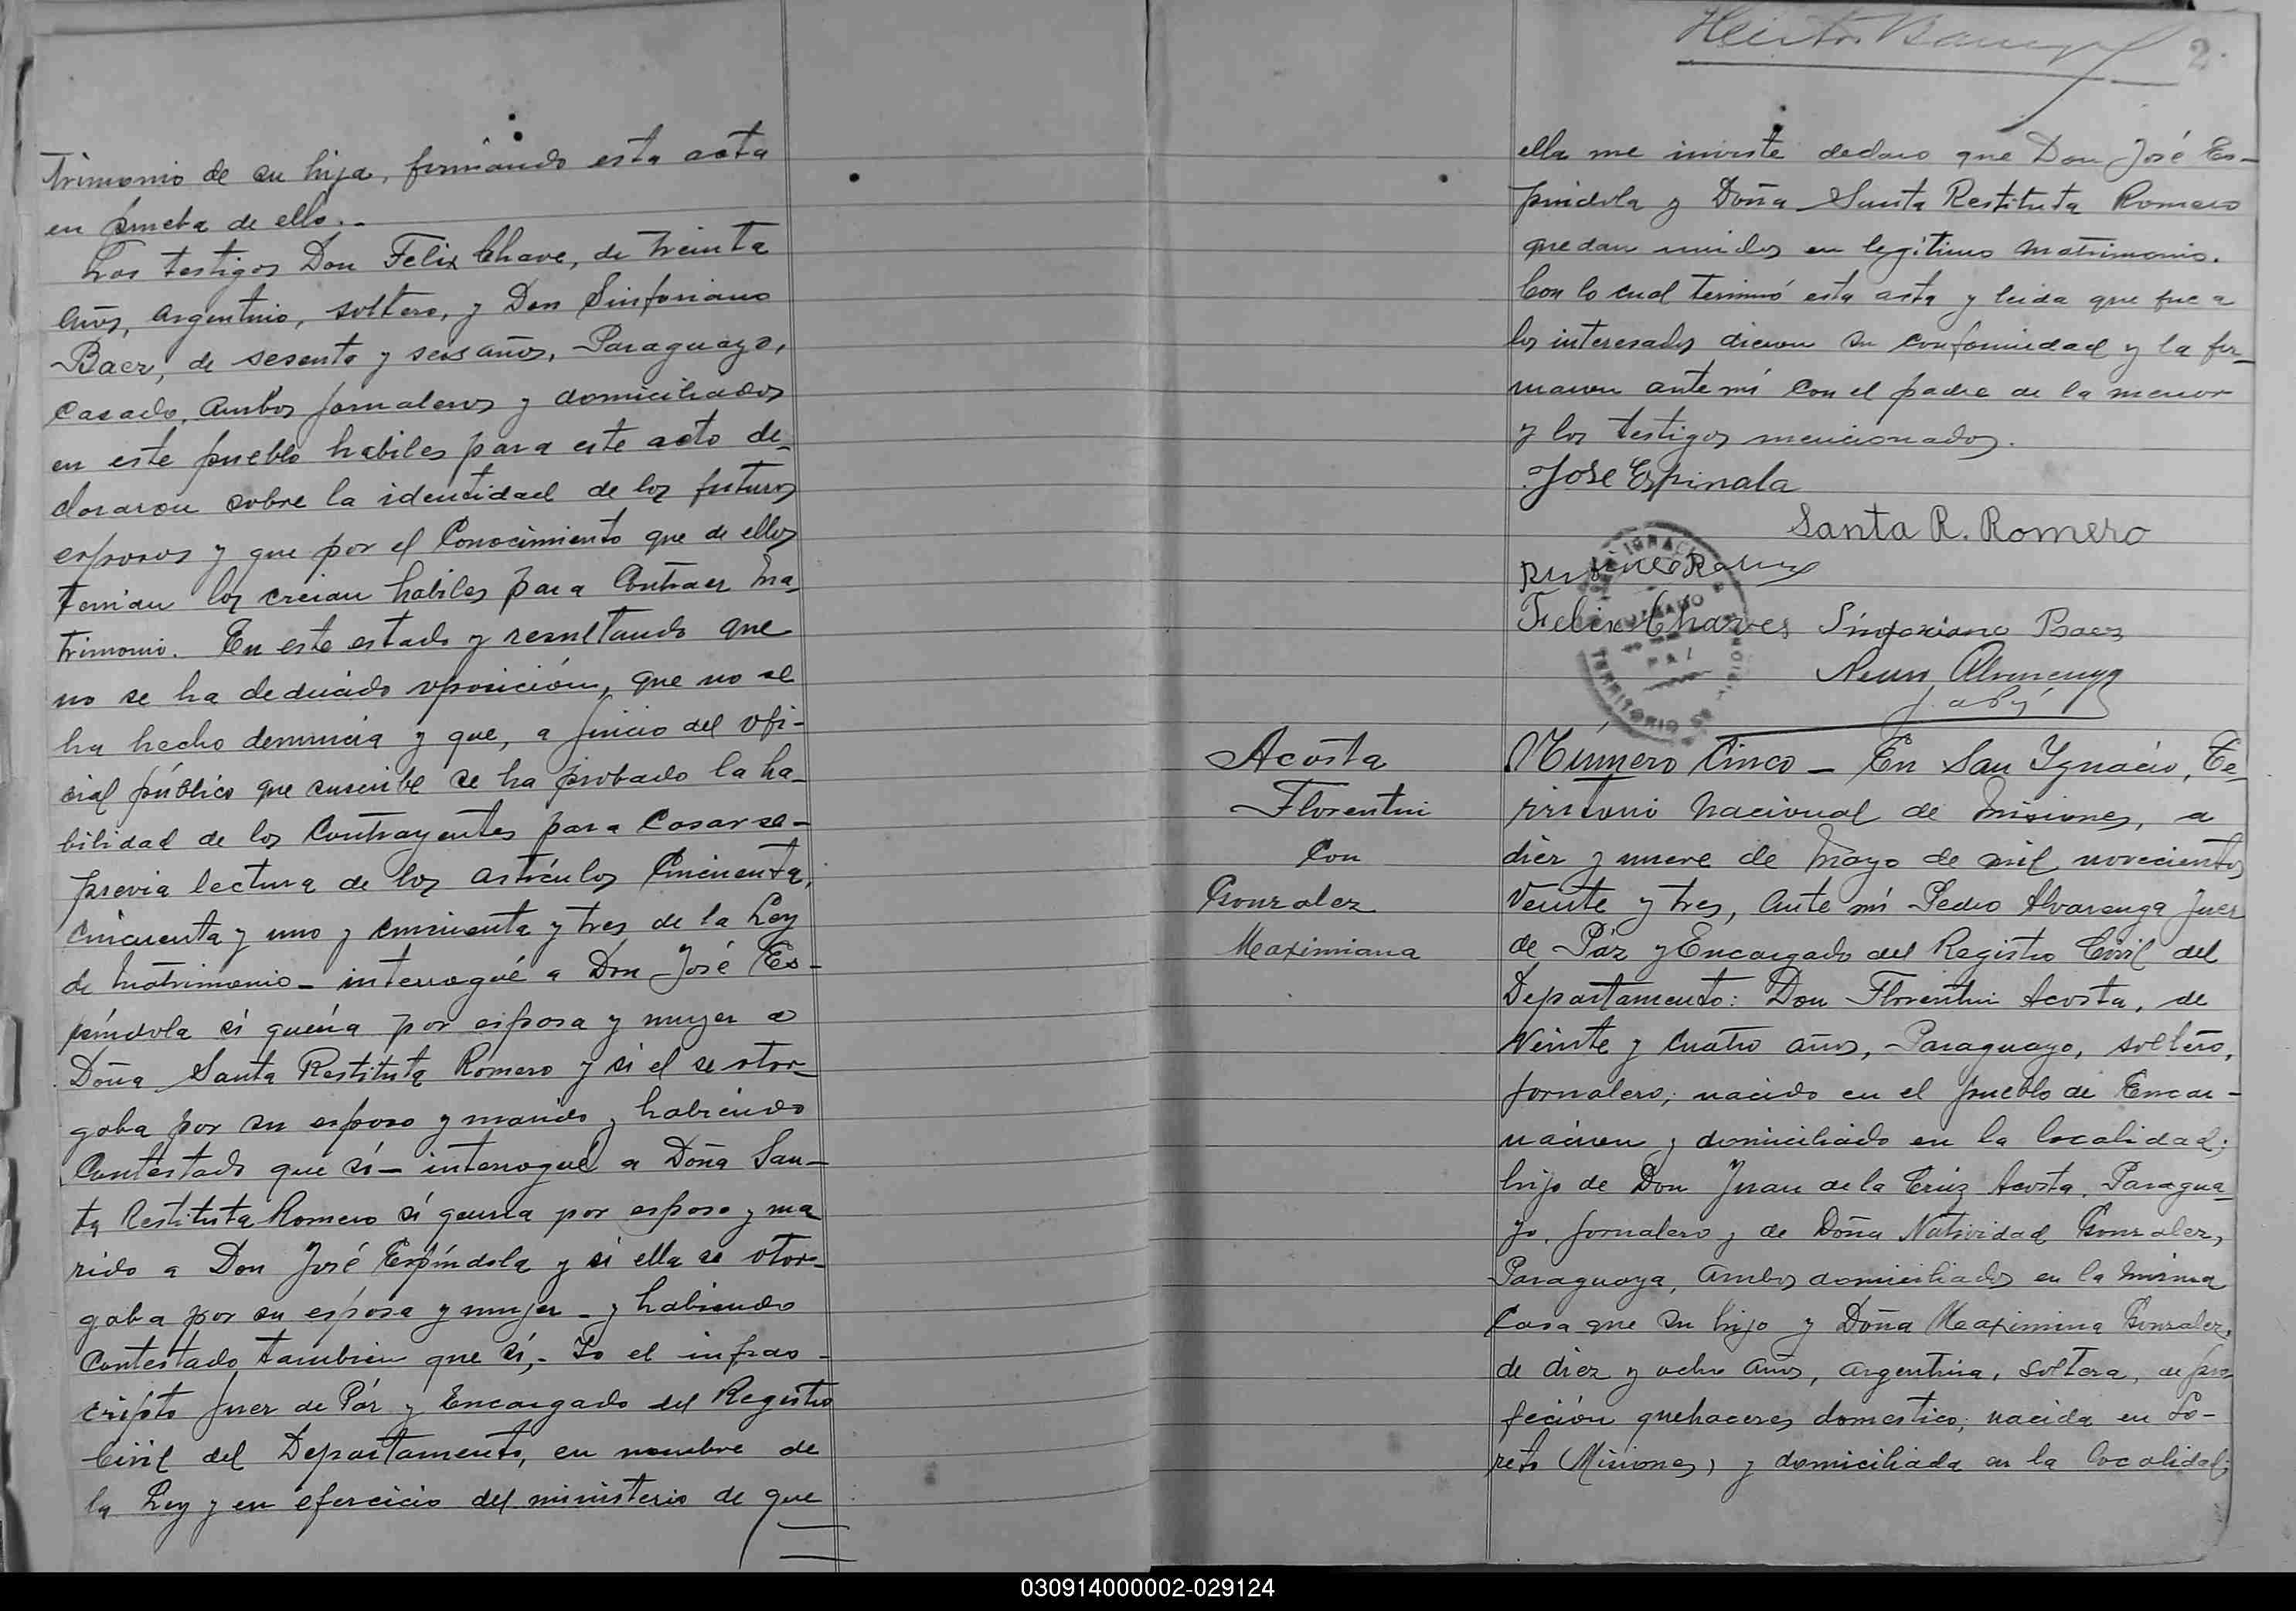 trimonio de su hija, firmando esta acta
en prueba de ello.-
Los testigos Don Felix Chave, de treinta
años, argentino, soltero, y Don Sinforiano
Baez, de sesenta y seis años, Paraguayo,
casado, ambos jornaleros y domiciliados
en este pueblo habiles para este acto de-
clararon sobre la identidad de los futuros
esposos y que por el Conocimiento que de ellos
tenian los creian habiles para Contraer ma-
trimonio. En este estado y resultando que
no se ha deducido oposición, que no se
ha hecho denuncia y que, a juicio del ofi-
cial público que suscribe se ha probado la ha-
bilidad de los Contrayentes para Casarse-
previa lectura de los artículos Cincuenta,
Cincuenta y uno y cincuenta y tres de la Ley
de matrimonio - interrogué a Don José Es-
píndola si quería por esposa y mujer a
Doña Santa Restituta Romero y si el se otor-
gaba por su esposo y marido y habiendo
Contestado que sí - interrogué a Doña San-
ta Restituta Romero si queria por esposo y ma
rido a Don José Espíndola y si ella se otor-
gaba por su esposa y mujer - y habiendo
Contestado tambien que sí,- Yo el infras-
cripto Juez de Páz y Encargado del Registro
Civil del Departamento, en nombre de
la Ley y en ejercicio del ministerio de que
2.
ella me inviste declaro que Don José Es-
píndola y Doña Santa Restituta Romero
quedan unidos en legítimo matrimonio.
Con lo cual terminó esta acta y leida que fue a
los interesados dieron su conformidad y la fir-
maron ante mí Con el padre de la menor
y los testigos mencionados.
Jose Espinala
Santa R. Romero
Felix Chaves Sinforiano Baez
Alvarenga
TERRITORIO DE
Acosta
Florentin
Con
Gonzalez
Maximiana
Número Cinco - En San Ygnacio, Te-
rritorio Nacional de Misiones, a
diez y nueve de Mayo de mil novecientos
veinte y tres, ante mí Pedro Alvarenga Juez
de Páz y Encargado del Registro Civil del
Departamento: Don Florentin Acosta, de
Veinte y cuatro años, Paraguayo, soltero,
jornalero, nacido en el pueblo de Encar-
nacion y domiciliado en la localidad;
hijo de Don Juan de la Cruz Acosta, Paragua-
yo, jornalero y de Doña Natividad Gonzalez,
Paraguaya, ambos domiciliados en la misma
Casa que su hijo y Doña Maximina Gonzalez,
de diez y ocho años, argentina, soltera, de pro-
feción quehaceres domestico; nacida en Lo-
reto (Misiones) y domiciliada en la localidad;
030914000002-029124